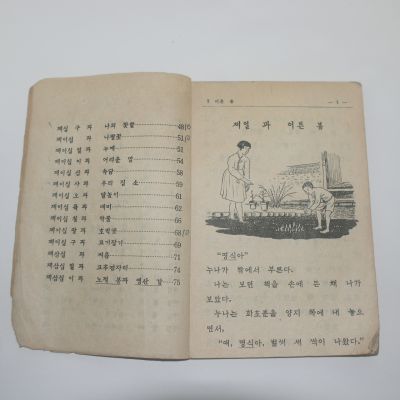 제십 구 과 나의 꽃밭 48
제이십 과 나팔꽃 51
제이십 일 과 누에 54
제이십 이 과 어려운 말 57
제이십 삼 과 속담 58
제이십 사 과 우리 집 소 59
제이십 오 과 달놀이 61
제이십 육 과 매미 62
제이십 칠 과 약물 66
제이십 팔 과 호박꽃 68
제이십 구 과 고기잡기 69
제삼십 과 씨름 71
제삼십 일 과 고추잠자리 74
제삼십 이 과 노적 봉과 영산 달 75
1 이른 봄 — 1 —
제일 과 이른 봄
"명식아"
누나가 밖에서 부른다.
나는 보던 책을 손에 든 채 나가
보았다.
누나는 화초분을 양지 쪽에 내 놓으
면서,
"얘, 명식아, 벌써 새 싹이 나왔다."